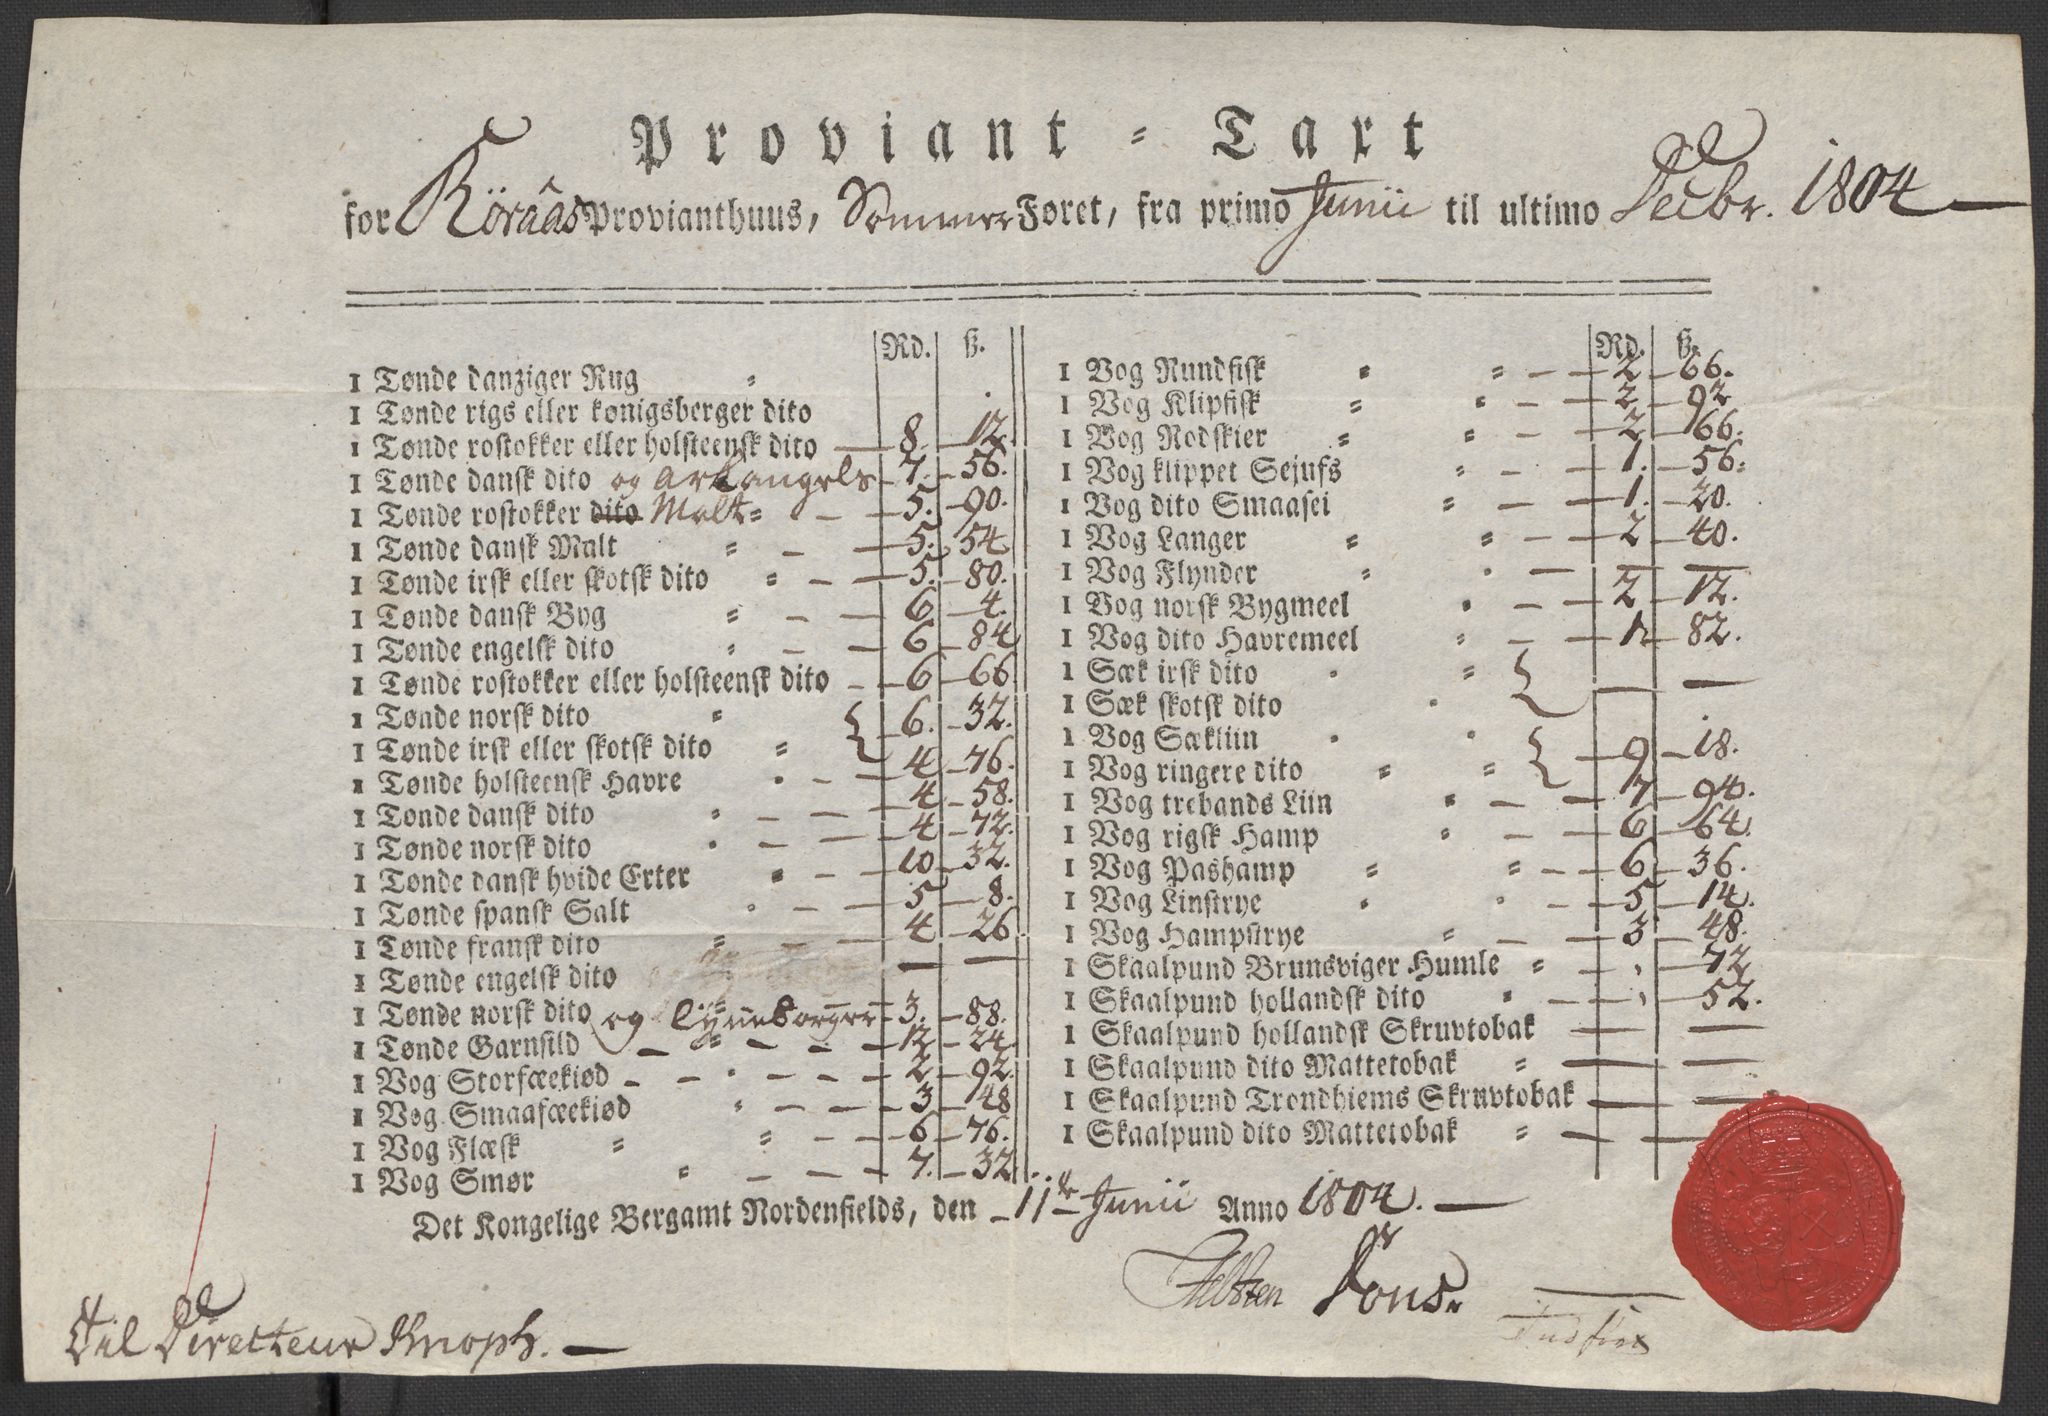 Proviant - Taxt
for Röraas Provianthuus, Sommer Føret, fra primo Junii til ultimo Decbr. 1804
Rd. ß.
1 Tønde danziger Rug
1 Tønde rigs eller kønigsberger dito
1 Tønde rostokker eller holsteensk dito 8. 12.
1 Tønde dansk dito og Arkangels 7. 56.
1 Tønde rostokker dito Malt 5. 90.
1 Tønde dansk Malt 5. 54
1 Tønde irsk eller skotsk dito 5. 80.
1 Tønde dansk Byg 6 4.
1 Tønde engelsk dito 6 84
1 Tønde rostokker eller holsteensk dito 6 66
1 Tønde norsk dito } 6. 32.
1 Tønde irsk eller skotsk dito
1 Tønde holsteensk Havre 4 76.
1 Tonde dansk dito 4 58.
1 Tønde norsk dito 4 72.
1 Tønde dansk hvide Erter 10 32.
1 Tønde spansk Salt 5 8.
1 Tønde fransk dito 4 26
1 Tønde engelsk dito — —
1 Tønde norsk dito og Lyneborger 3. 88.
1 Tønde Garnsild 12 24
1 Vog Storfæekiød 2 92.
1 Vog Smaafæekiød 3 48
1 Vog Flæsk 6 76.
1 Vog Smør 7. 32
Rd. ß.
1 Vog Rundfisk 2 66.
1 Vog Klipfisk 2 92
1 Vog Rodskier 2 66.
1 Vog klippet Sejufs 1. 56.
1 Vog dito Smaasei 1. 20.
1 Vog Langer 2 40.
1 Vog Flynder — —
1 Vog norsk Bygmeel 2 12.
1 Vog dito Havremeel 1 82.
1 Sæk irsk dito { — —
1 Sæk skotsk dito
1 Vog Sækliin { 9 18.
1 Vog ringere dito
1 Vog trebands Liin 7 94.
1 Vog rigsk Hamp 6 64.
1 Vog Pashamp 6 36.
1 Vog Linstrye 5 14.
1 Vog Hampstrye 3 48.
1 Skaalpund Brunsviger Humle 72
1 Skaalpund hollandsk dito 52.
1 Skaalpund hollandsk Skruvtobak — —
1 Skaalpund dito Mattetobak — —
1 Skaalpund Trondhiems Skruvtobak — —
1 Skaalpund dito Mattetobak — —
Det Kongelige Bergamt Nordenfields, den 11te Junii Anno 1804.
Til Directeur Knoph.